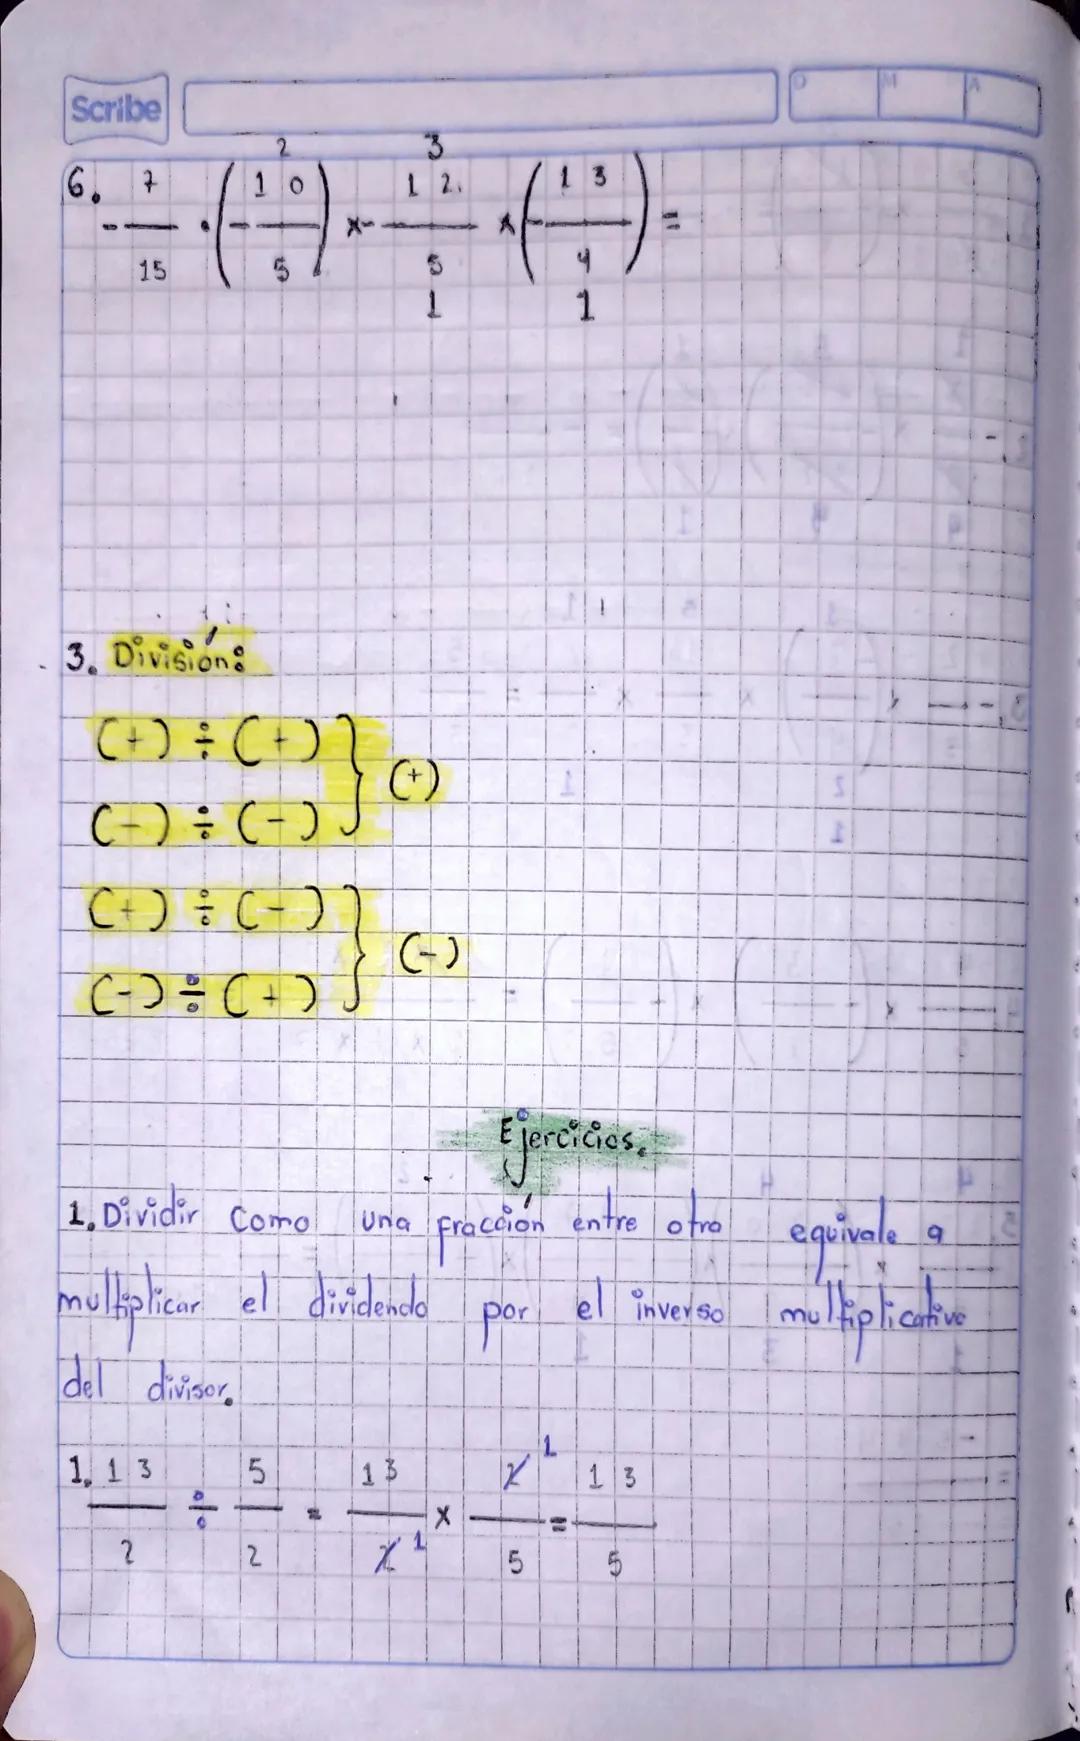 Scribe
D M A
2 3
6. -7/15 · (-10/5) x -12/5 x (-13/4) =
1 1
3. División:
(+) ÷ (+) } (+)
(-) ÷ (-)
(+) ÷ (-) } (-)
(-) ÷ (+)
Ejercicios.
1. Dividir como una fracción entre otra equivale a
multiplicar el dividendo por el inverso multiplicativo
del divisor.
1. 13/2 ÷ 5/2 = 13/2 1 x 2 1/5 = 13/5